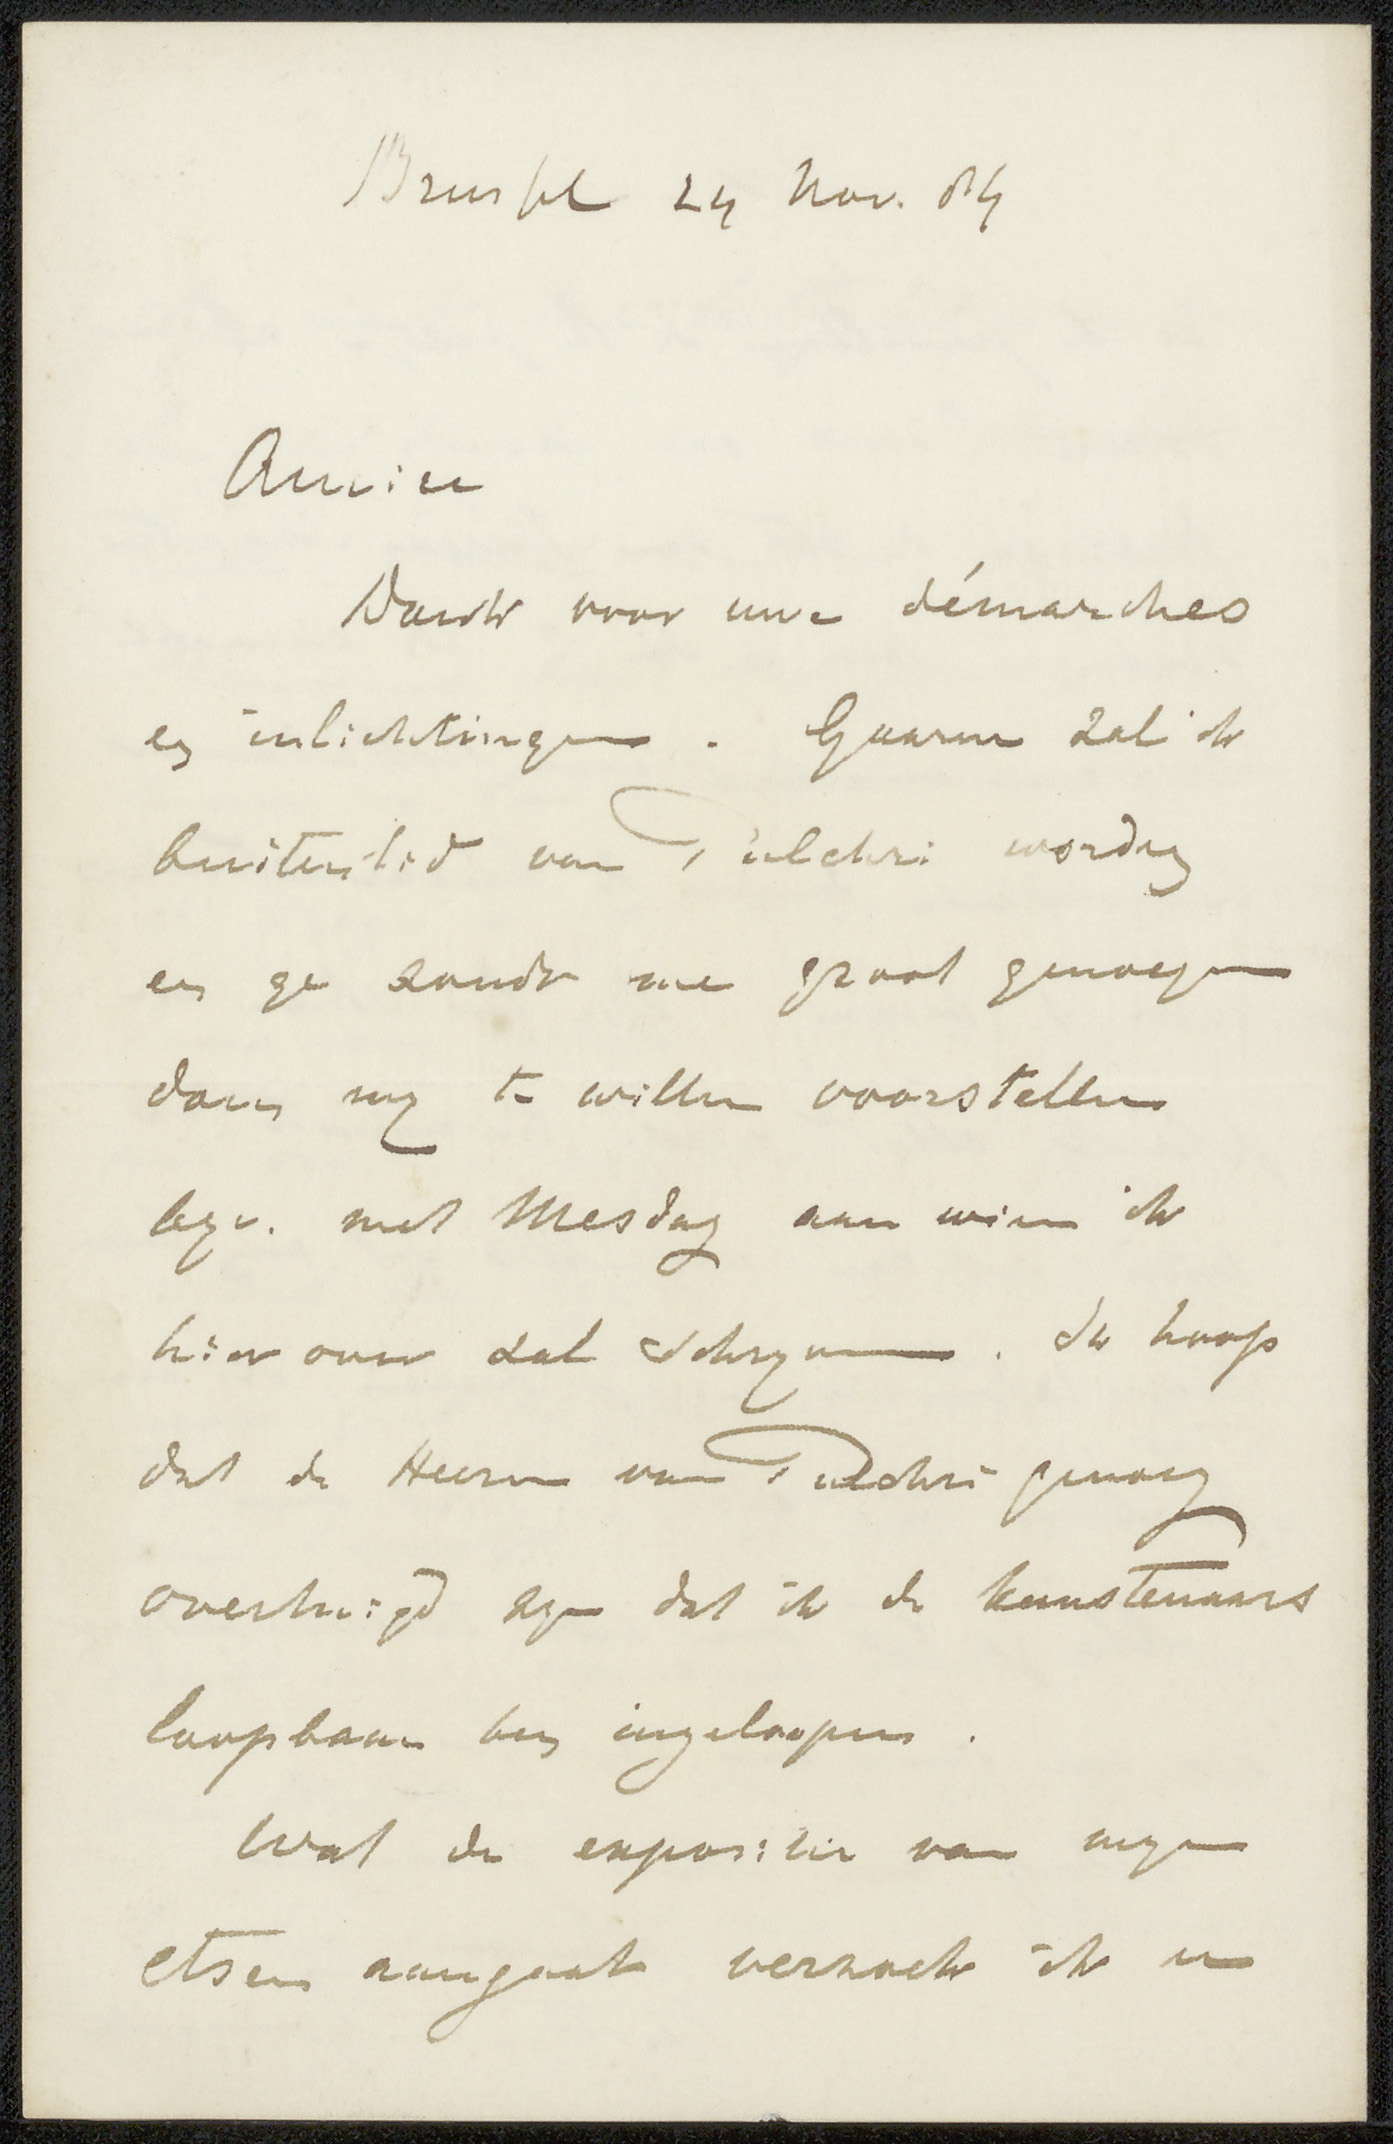 Brussel 24 Nov. 84
Amice
Dank voor uwe démarches
en inlichtingen. Gaarne zal ik
buitenlid van Pulchri worden
en ge zoudt me groot genoegen
doen my te willen voorstellen
bgv. met Mesdag aan wien ik
hierover zal schryven. Ik hoop
dat de Heeren van Pulchri genoeg
overtuigd zyn dat ik de kunstenaars
loopbaan ben ingeloopen.
Wat de expositie van myn
etsen aangaat verzoek ik u